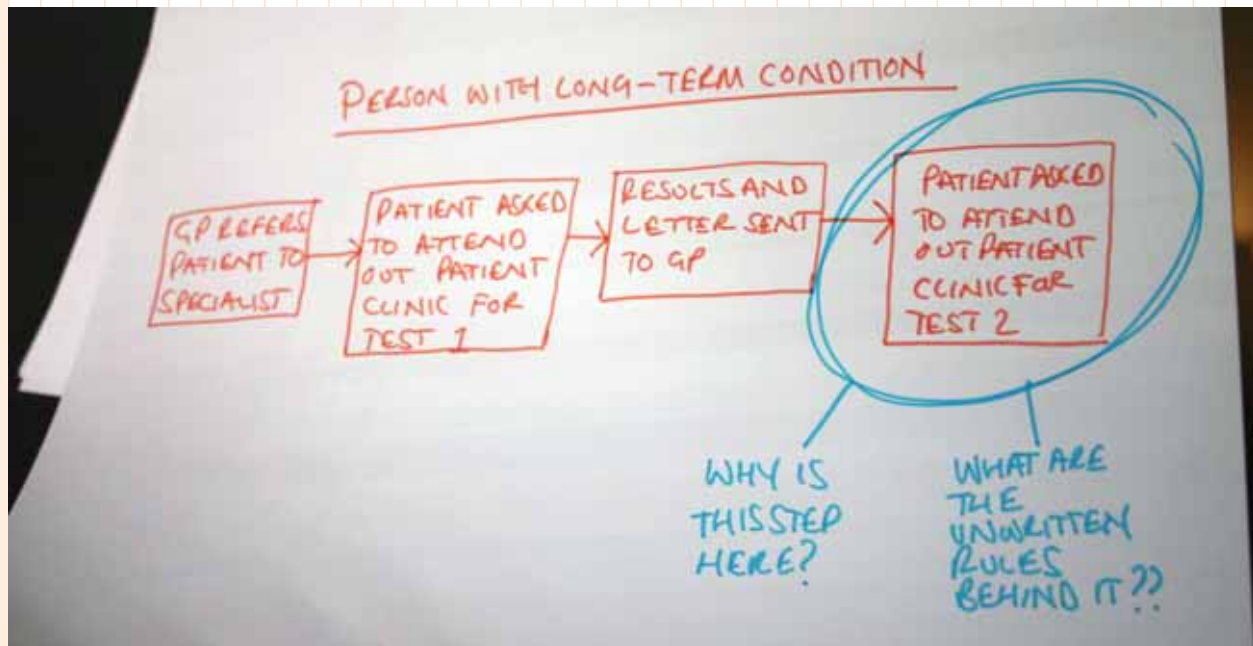 PERSON WITH LONG-TERM CONDITION
GP REFERS
PATIENT TO
SPECIALIST
PATIENT ASKED
TO ATTEND
OUT PATIENT
CLINIC FOR
TEST 1
RESULTS AND
LETTER SENT
TO GP
PATIENT ASKED
TO ATTEND
OUT PATIENT
CLINIC FOR
TEST 2
WHY IS
THIS STEP
HERE?
WHAT ARE
THE
UNWRITTEN
RULES
BEHIND IT??